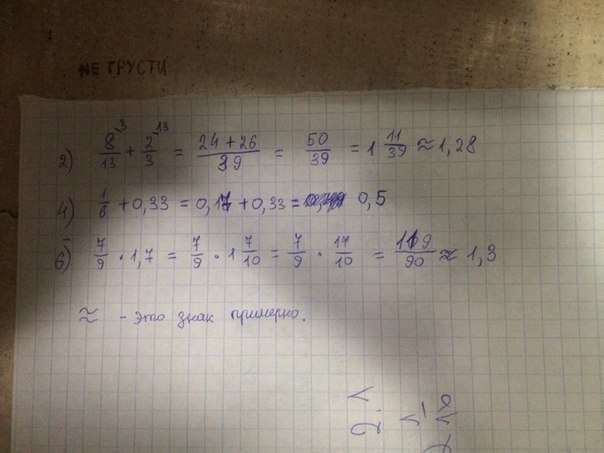 НЕ ГРУСТИ
2) 8/13 + 2/3 = (24+26)/39 = 50/39 = 1 11/39 ≈ 1,28
4) 1/6 + 0,33 = 0,17 + 0,33 = 0,5
6) 7/9 · 1,7 = 7/9 · 1 7/10 = 7/9 · 17/10 = 119/90 ≈ 1,3
≈ - это знак примерно.